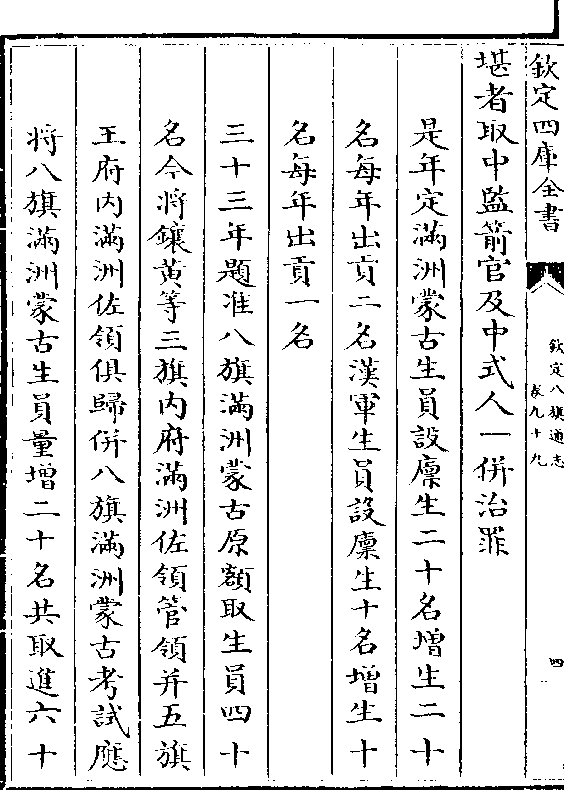 欽定四庫全書
欽定八旗通志
卷九十九
四
堪者取中監箭官及中式人一併治罪
是年定滿洲蒙古生員設廩生二十名增生二十
名每年出貢二名漢軍生員設廩生十名增生十
名每年出貢一名
三十三年題准八旗滿洲蒙古原額取生員四十
名今將鑲黃等三旗内府滿洲佐領管領并五旗
王府内滿洲佐領俱歸併八旗滿洲蒙古考試應
將八旗滿洲蒙古生員量增二十名共取進六十